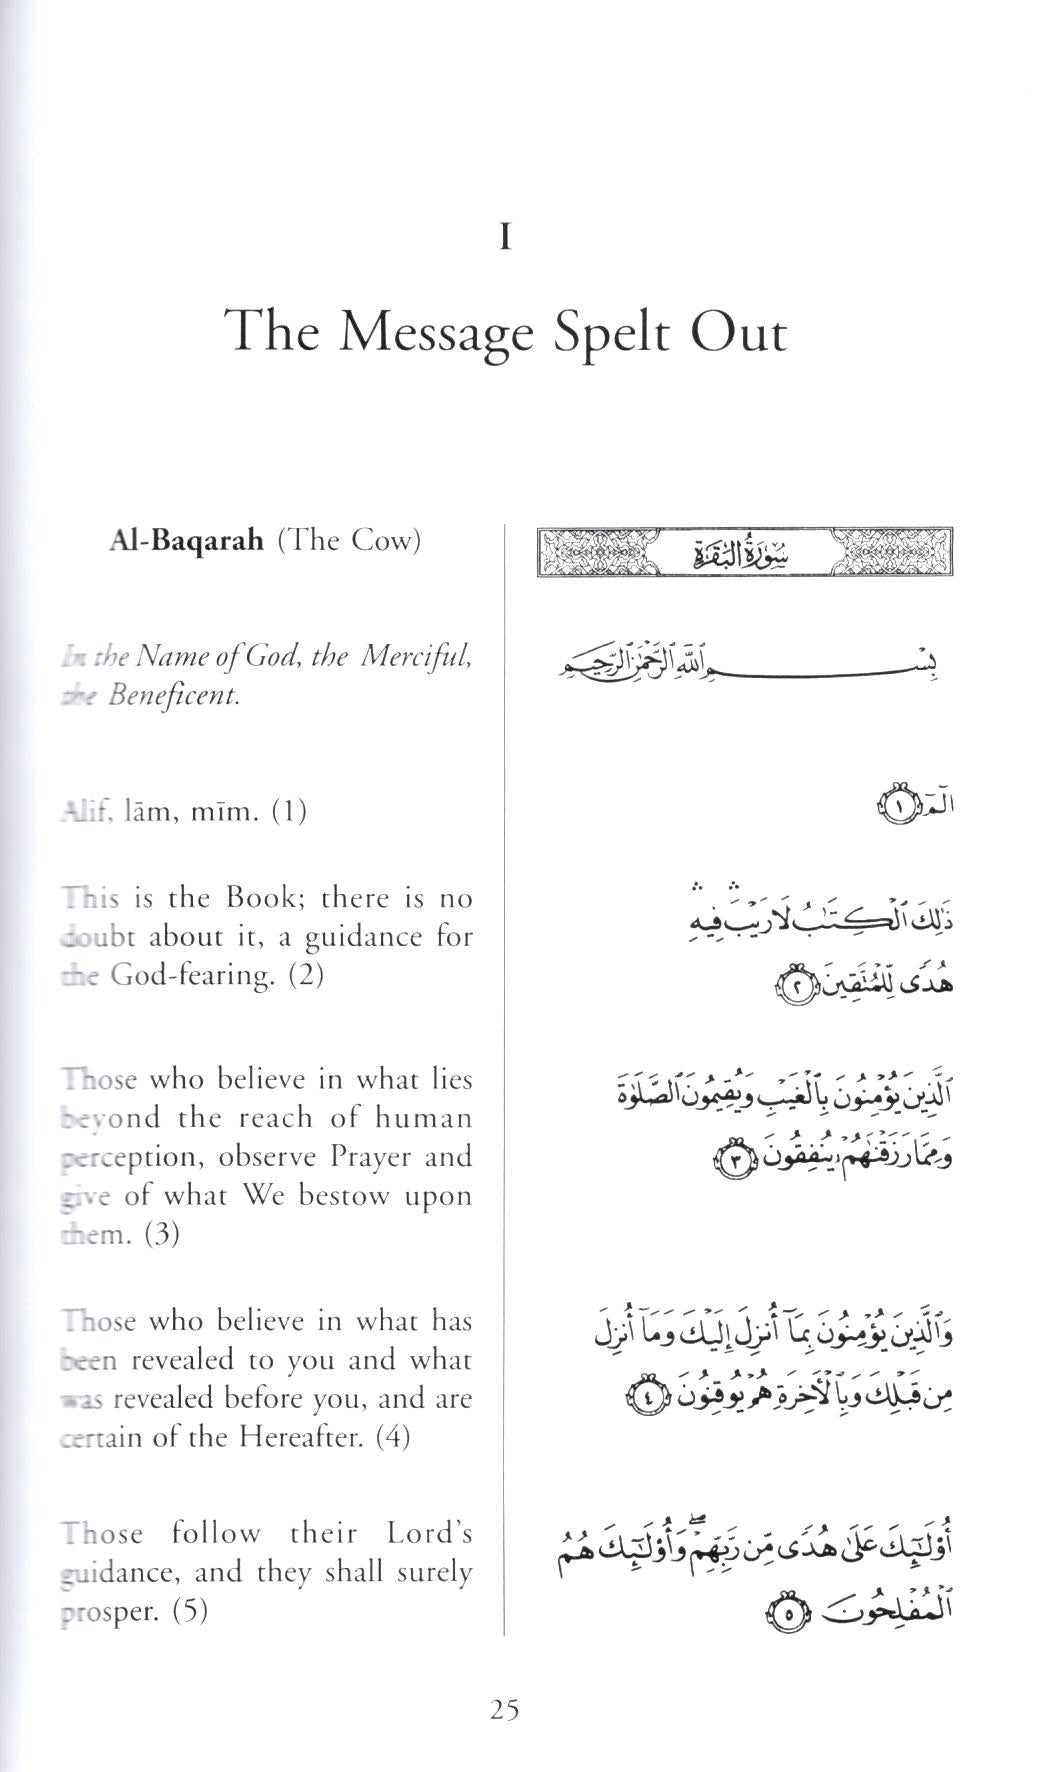 I
The Message Spelt Out
Al-Baqarah (The Cow)
In the Name of God, the Merciful,
the Beneficent.
Alif, lām, mīm. (1)
This is the Book; there is no
doubt about it, a guidance for
the God-fearing. (2)
Those who believe in what lies
beyond the reach of human
perception, observe Prayer and
give of what We bestow upon
them. (3)
Those who believe in what has
been revealed to you and what
was revealed before you, and are
certain of the Hereafter. (4)
Those follow their Lord's
guidance, and they shall surely
prosper. (5)
سُورَةُ الْبَقَرَةِ
بِسْمِ ٱللَّهِ ٱلرَّحْمَٰنِ ٱلرَّحِيمِ
الٓمٓ ١
ذَٰلِكَ ٱلْكِتَٰبُ لَا رَيْبَ ۛ فِيهِ ۛ
هُدًى لِّلْمُتَّقِينَ ٢
ٱلَّذِينَ يُؤْمِنُونَ بِٱلْغَيْبِ وَيُقِيمُونَ ٱلصَّلَوٰةَ
وَمِمَّا رَزَقْنَٰهُمْ يُنفِقُونَ ٣
وَٱلَّذِينَ يُؤْمِنُونَ بِمَآ أُنزِلَ إِلَيْكَ وَمَآ أُنزِلَ
مِن قَبْلِكَ وَبِٱلْأَخِرَةِ هُمْ يُوقِنُونَ ٤
أُوْلَٰٓئِكَ عَلَىٰ هُدًى مِّن رَّبِّهِمْ ۖ وَأُوْلَٰٓئِكَ هُمُ
ٱلْمُفْلِحُونَ ٥
25